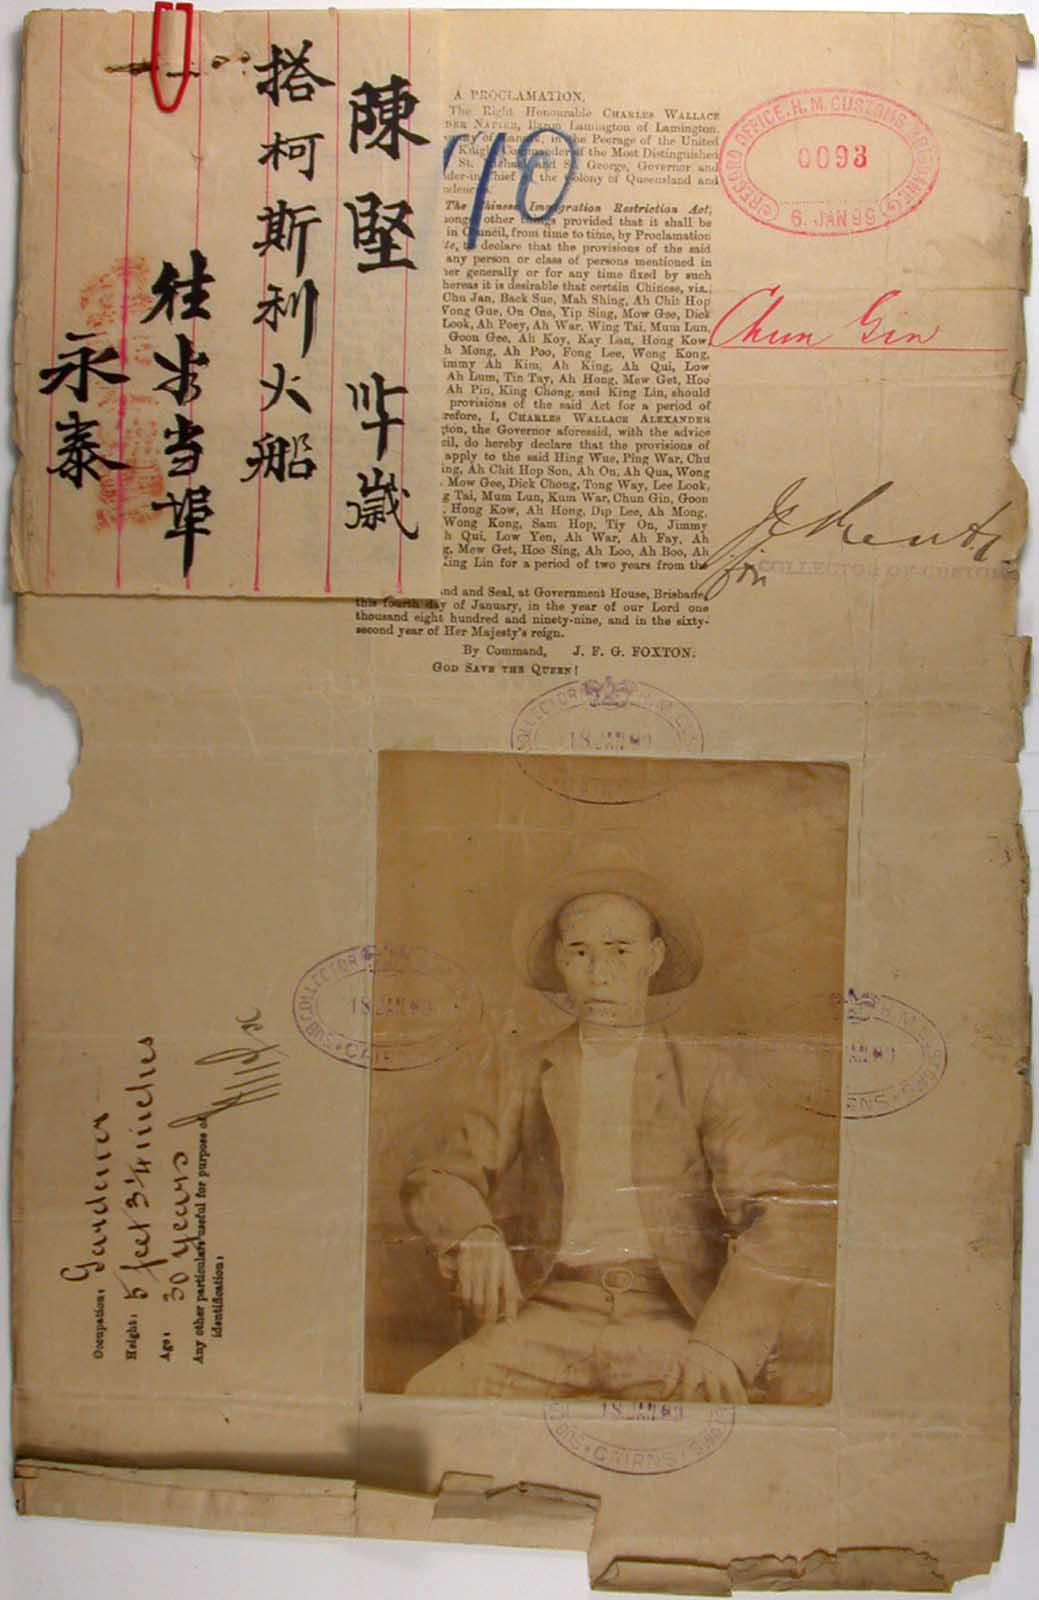 陳堅 卅歲
搭柯斯利火船
徃坚当埠
永泰
A PROCLAMATION.
The Right Honourable CHARLES WALLACE
NAPIER, Baron Lamington of Lamington,
in the Peerage of the United
Knight Commander of the Most Distinguished
St. Michael and St. George, Governor and
Chief of the Colony of Queensland and
The Chinese Immigration Restriction Act,
other things provided that it shall be
in Council, from time to time, by Proclamation
to declare that the provisions of the said
any person or class of persons mentioned in
generally or for any time fixed by such
whereas it is desirable that certain Chinese, viz.,
Chu Jan, Back Sue, Mah Shing, Ah Chit Hop
Wong Gue, On One, Yip Sing, Mow Gee, Dick
Look, Ah Poey, Ah War, Wing Tai, Mum Lun,
Goon Gee, Ah Koy, Kay Lan, Hong Kow,
Mong, Ah Poo, Fong Lee, Wong Kong,
Jimmy Ah Kim, Ah King, Ah Qui, Low
Ah Lum, Tin Tay, Ah Hong, Mew Get, Hoo
Ah Pin, King Chong, and King Lin, should
provisions of the said Act for a period of
I, CHARLES WALLACE ALEXANDER
the Governor aforesaid, with the advice
do hereby declare that the provisions of
apply to the said Hing Wue, Ping War, Chu
Ah Chit Hop Son, Ah On, Ah Qua, Wong
Mow Gee, Dick Chong, Tong Way, Lee Look,
Tai, Mum Lun, Kum War, Chun Gin, Goon
Hong Kow, Ah Hong, Dip Lee, Ah Mong,
Wong Kong, Sam Hop, Tiy On, Jimmy
Qui, Low Yen, Ah War, Ah Fay, Ah
Mew Get, Hoo Sing, Ah Loo, Ah Boo, Ah
King Lin for a period of two years from the
and Seal, at Government House, Brisbane,
this fourth day of January, in the year of our Lord one
thousand eight hundred and ninety-nine, and in the sixty-
second year of Her Majesty's reign.
By Command, J. F. G. FOXTON.
GOD SAVE THE QUEEN!
RECORD OFFICE, H. M. CUSTOMS, BRISBANE
0093
6. JAN 99
Chun Gin
for
COLLECTOR OF CUSTOMS
COLLECTOR H.M. CUS
18 JAN 99
SUB COLLECTOR
18 JAN 99
H.M. CUSTOMS
CAIRNS
18 JAN 99
CAIRNS
Occupation: Gardener
Height: 5 feet 3 1/4 inches
Age: 30 years
Any other particulars useful for purpose of
identification: